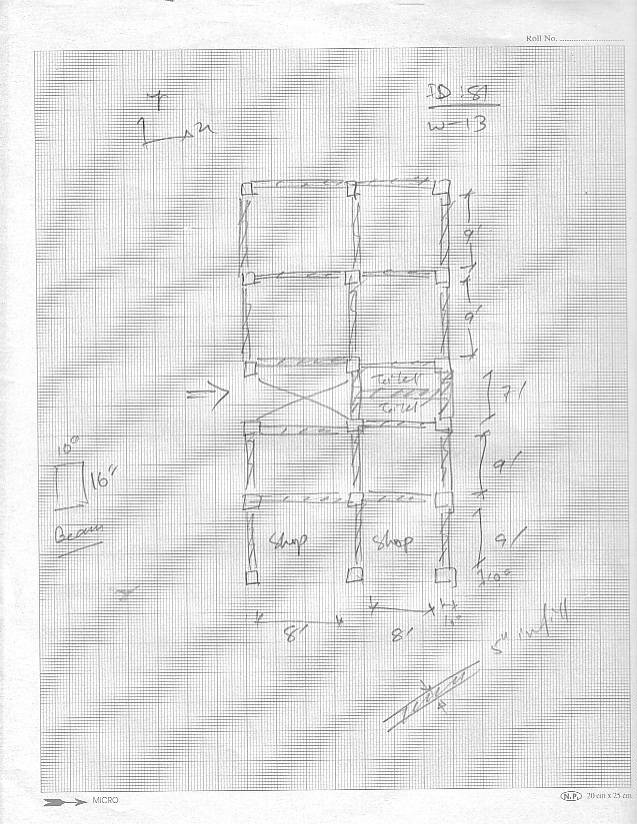 Roll No.
ID: 81
W-13
Y
x
9'
9'
Toilet
Toilet
7'
9'
10"
16"
Beam
Shop
Shop
9'
10"
8'
8'
10"
5" infill
MICRO
N.P. 20 cm x 25 cm